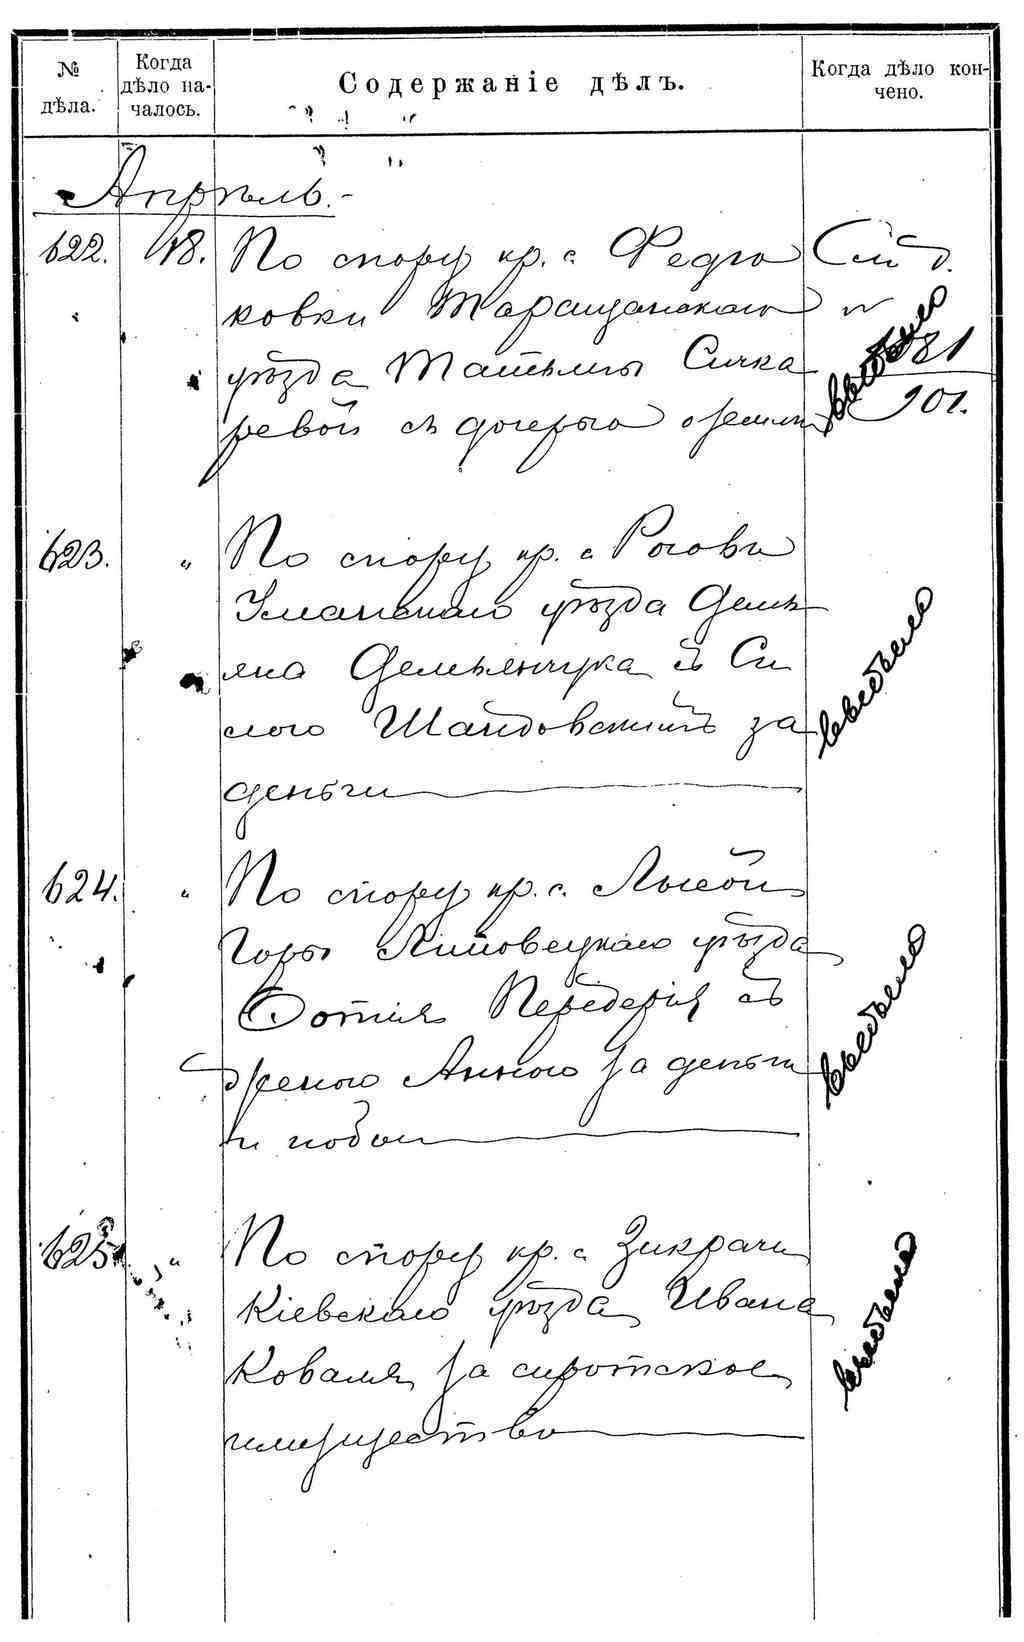 № дѣла.
Когда дѣло началось.
Содержаніе дѣлъ.
Когда дѣло кончено.
Апрѣль.-
622. 18. По спору кр. с. Федю
ковки Таращанскаго
уѣзда Татьяны Сичка
ревой съ дочерью о земли
См д.
№ 81
901.
выбыло
623. " По спору кр. с. Роговъ
Уманскаго уѣзда Демь
яна Демьянчука съ Си
лою за
деньги
выбыло
624. " По спору кр. с. Лысой
Горы Липовецкаго уѣзда
Фотія Передерія съ
женою Анною за деньги
и побои
выбыло
625. " По спору кр. с. Зикрачи
Кіевскаго уѣзда Ивана
Коваля за сиротское
имущество
выбыло